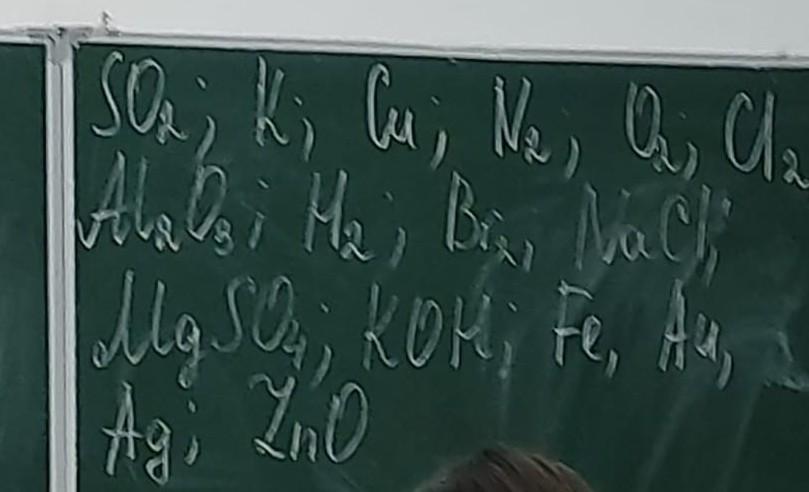 SO₂; K; Cu; N₂; O₂; Cl₂
Al₂O₃; H₂; Br₂, NaCl;
MgSO₄; KOH; Fe, Au,
Ag; ZnO